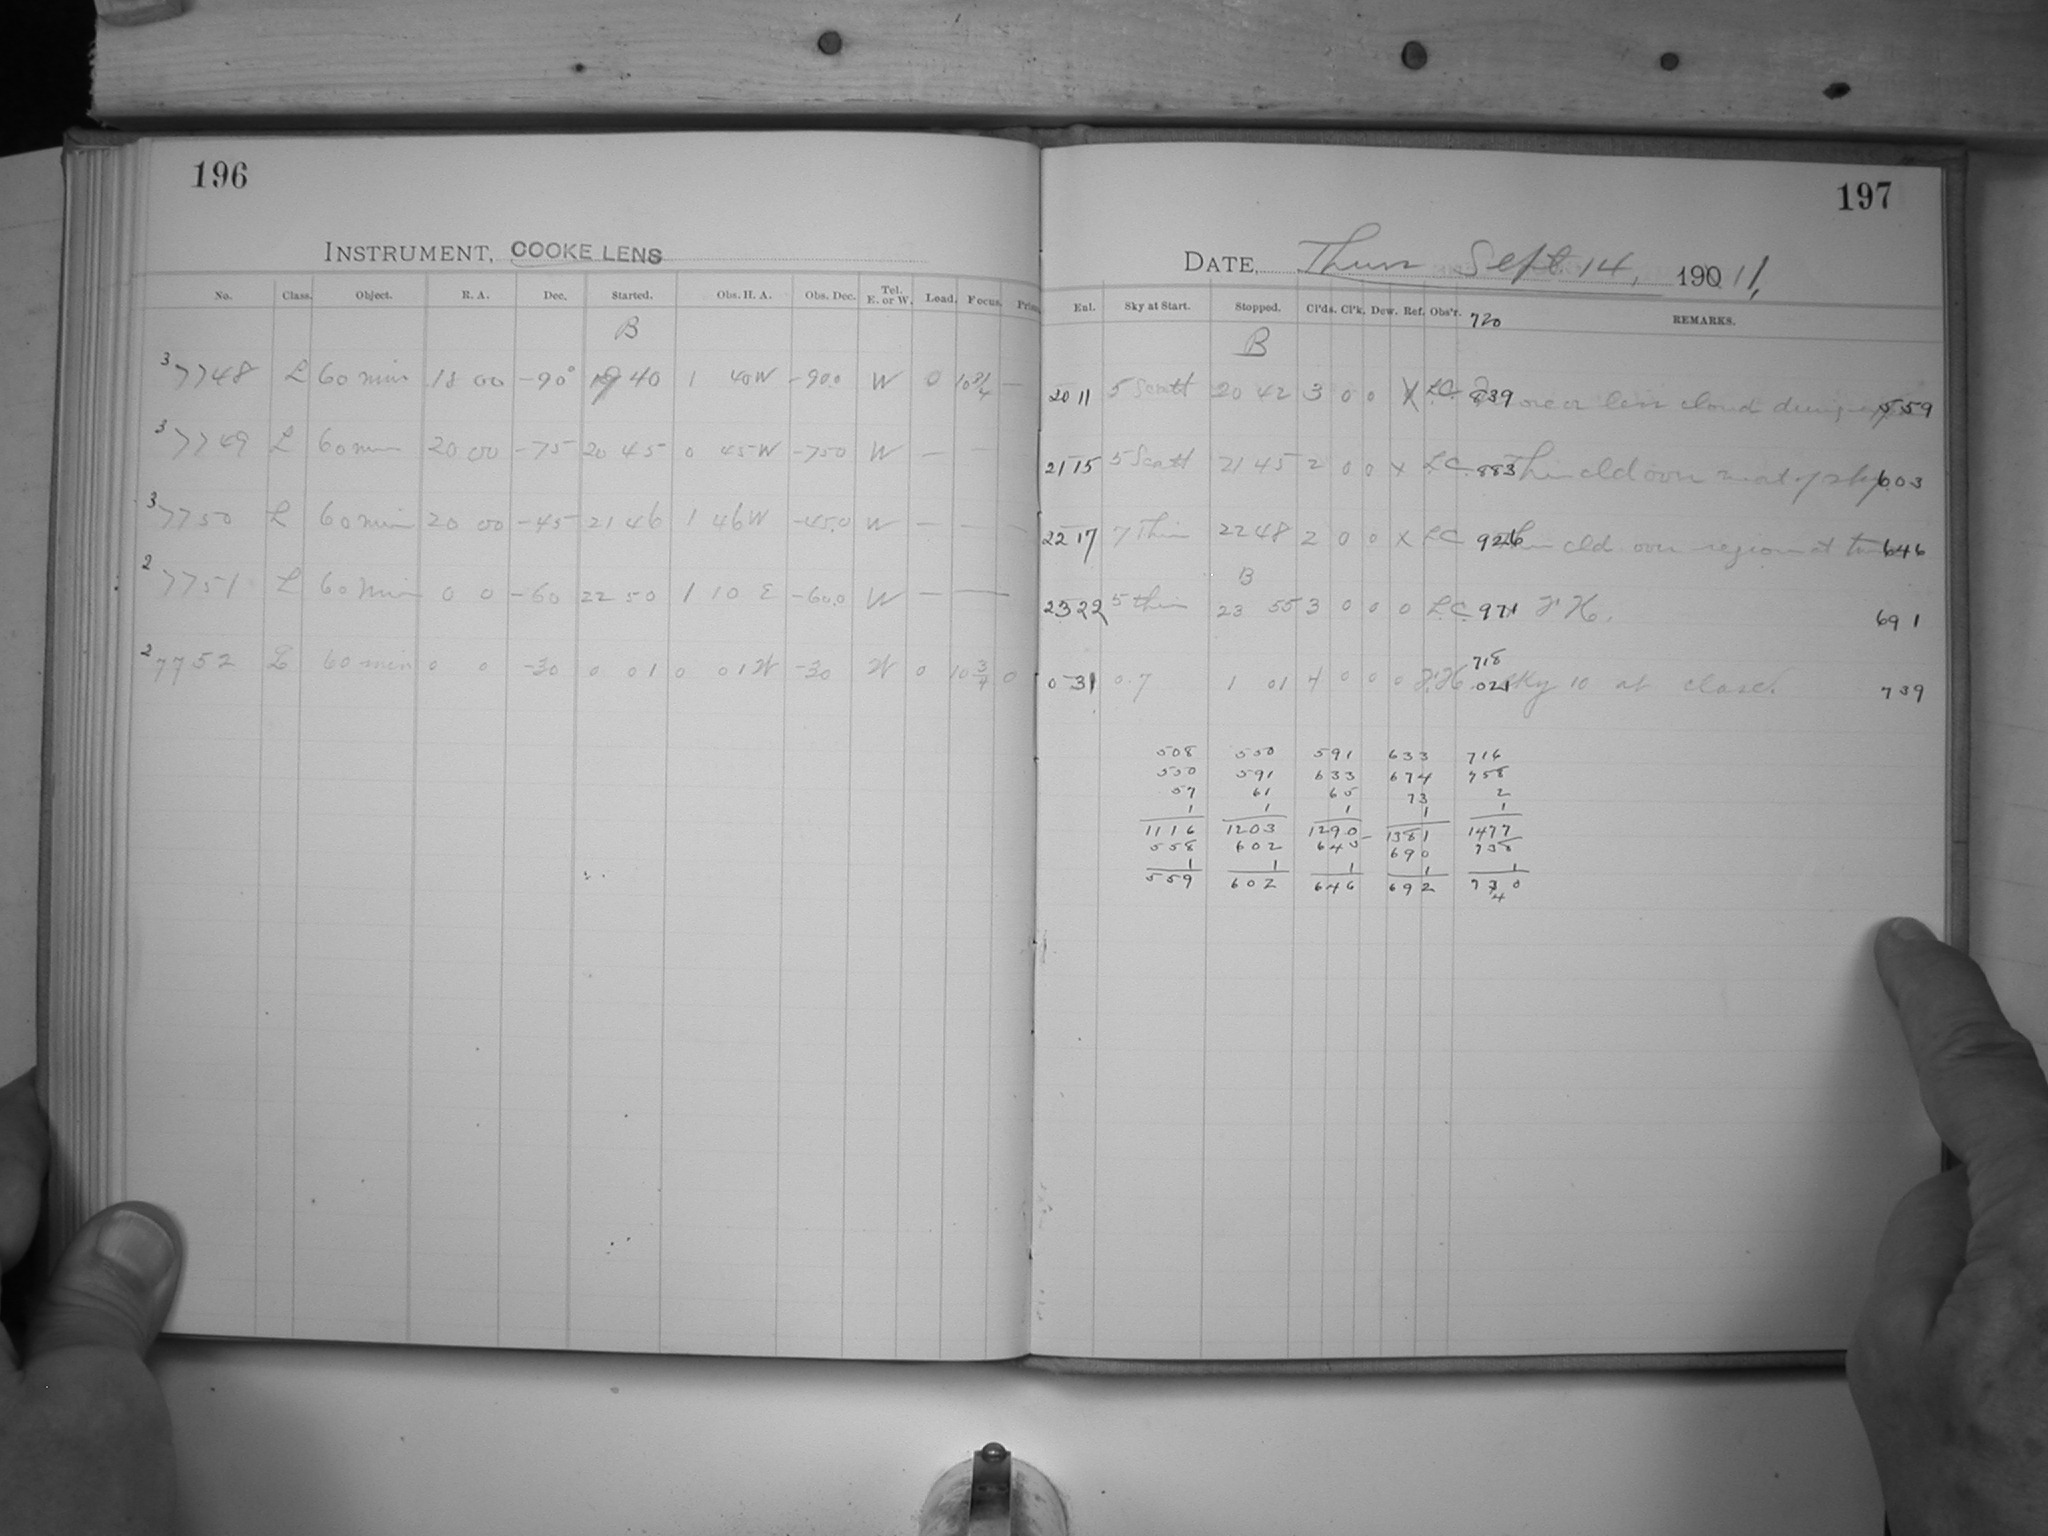 196
INSTRUMENT, COOKE LENS
No. Class. Object. R. A. Dec. Started. Obs. H. A. Obs. Dec. Tel. E. or W. Load. Focus.
B
3 7748 L 60 min 18 00 -90° 19 40 1 40 W -90.0 W 0 10 3/4 —
3 7749 L 60 min 20 00 -75 20 45 0 45 W -75.0 W — — —
3 7750 L 60 min 20 00 -45 21 46 1 46 W -45.0 W — — —
2 7751 L 60 min 0 0 -60 22 50 1 10 E -60.0 W — —
2 7752 L 60 min 0 0 -30 0 01 0 01 W -30 W 0 10 3/4 0
197
DATE, Thurs Sept. 14, 190 11,
Eal. Sky at Start. Stopped. Cl'ds. Cl'k. Dew. Ref. Obs'r. 720 REMARKS.
B
20 11 5 Scatt 20 42 3 0 0 X L.C. 839 more or less cloud during 559
21 15 5 Scatt 21 45 2 0 0 X L.C. 883 Thin cld over most of sky 603
22 17 7 Thin 22 48 2 0 0 X L.C. 926 Thin cld over region at 646
B
23 22 5 thin 23 55 3 0 0 0 L.C. 971 691
718
0 31 0.7 1 01 4 0 0 0 .021 Sky 10 at close. 739
508 550 591 633 716
550 591 633 674 758
57 61 65 73 2
1 1 1 1 1
1116 1203 1290 1381 1477
558 602 645 690 738
1 1 1 1 1
559 602 646 692 730
4